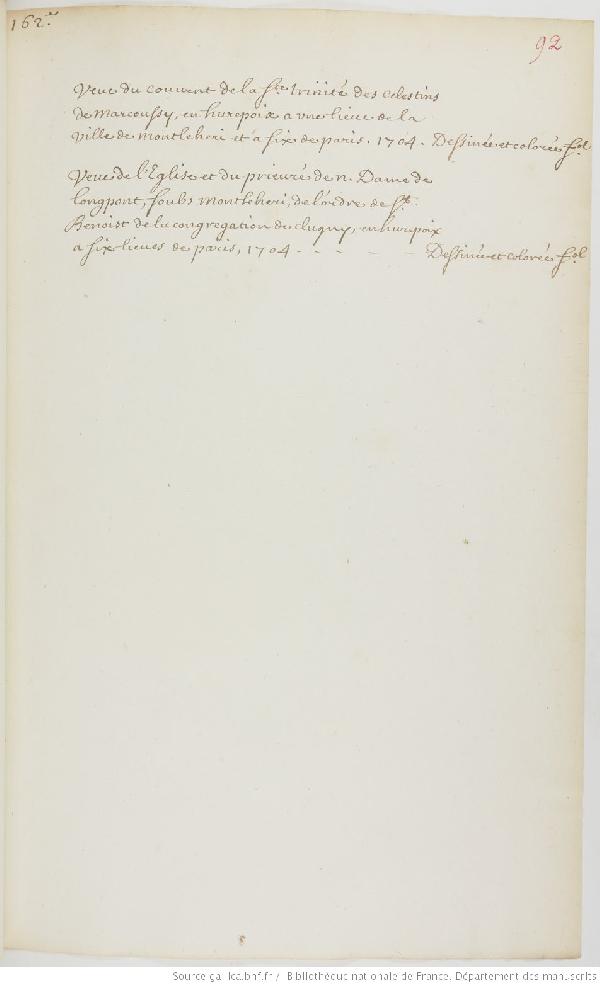 162.
92
Veue du couvent de la Ste. trinité des celestins
de Marcoussy, en hurepoix a une lieue de la
ville de montleheri et a six de paris. 1704. Dessinée et colorée fol
Veue de l'Eglise et du prieuré de n. Dame de
longpont, soubs montleheri, de l'ordre de St.
Benoist de la congregation de clugny, en hurepoix
a six lieues de paris, 1704 - - - - - Dessinée et colorée fol
Source gallica.bnf.fr / Bibliothèque nationale de France, Département des manuscrits